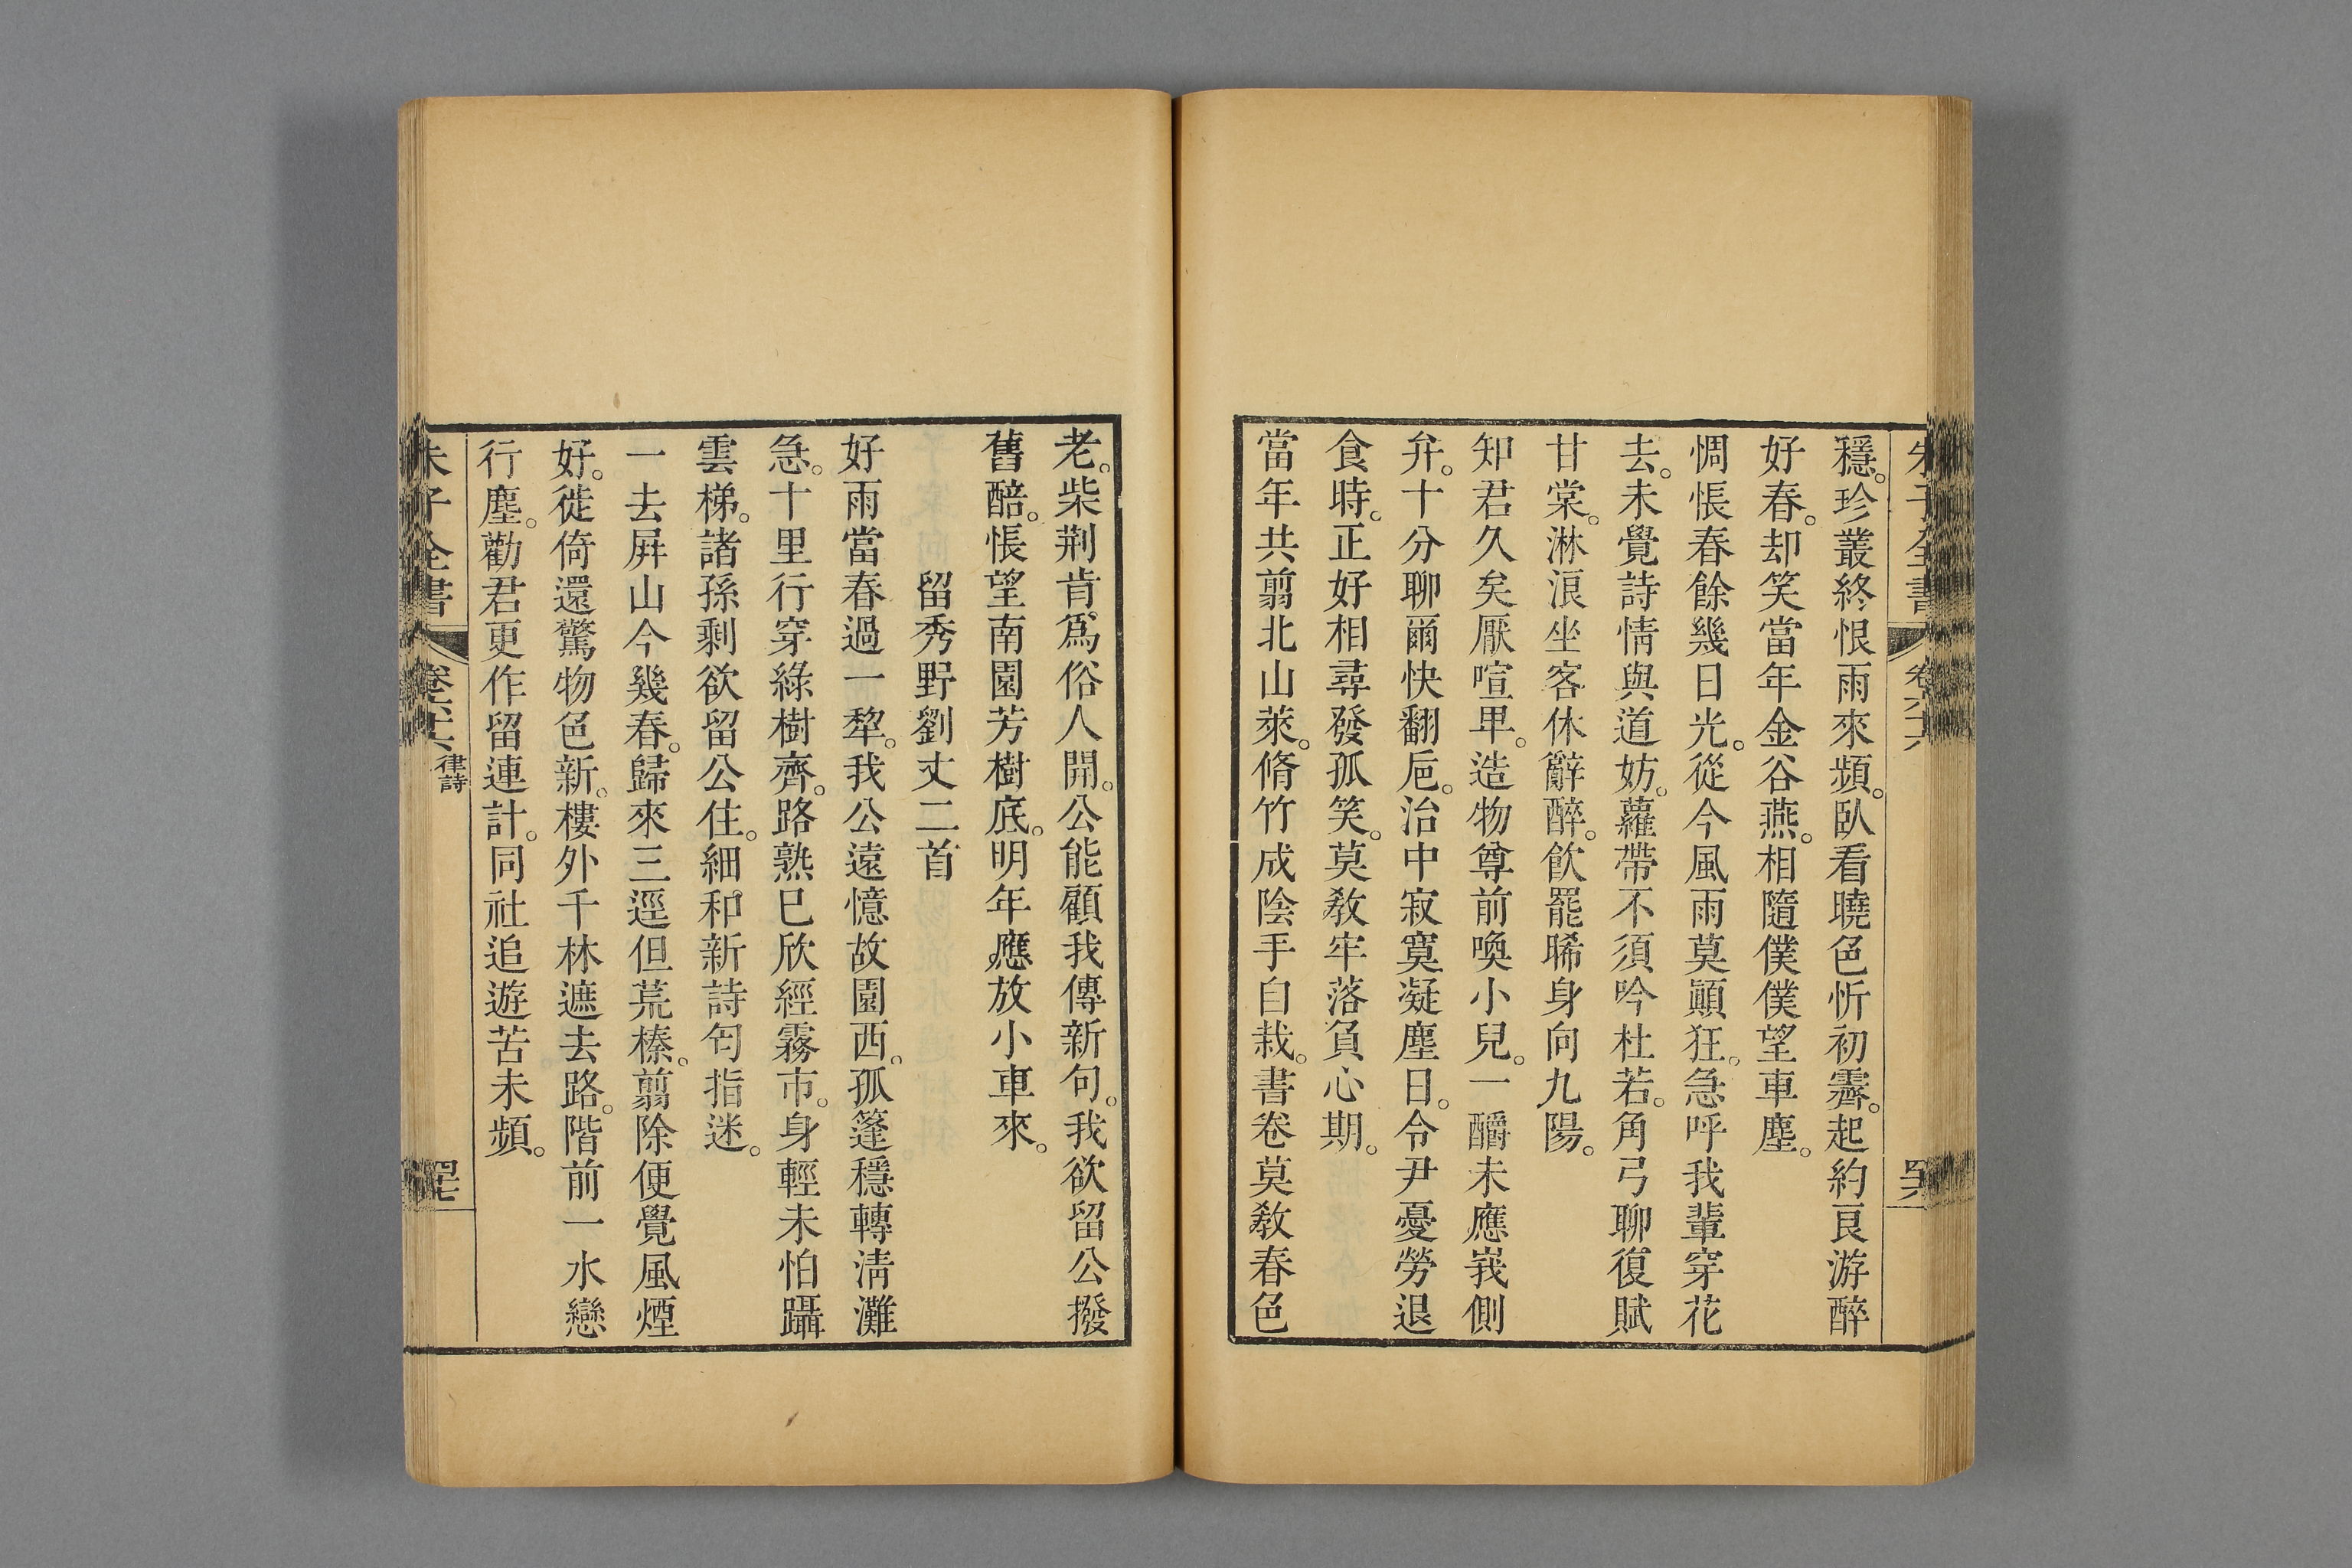 朱子全書 卷六十六
穩。珍叢終恨雨來頻。臥看曉色忻初霽。起約良游醉
好春。却笑當年金谷燕。相隨僕僕望車塵。
惆悵春餘幾日光。從今風雨莫顚狂。急呼我輩穿花
去。未覺詩情與道妨。蘿帶不須吟杜若。角弓聊復賦
甘棠。淋浪坐客休辭醉。飮罷晞身向九陽。
知君久矣厭喧卑。造物尊前喚小兒。一釂未應峩側
弁。十分聊爾快翻巵。治中寂寞凝塵日。令尹憂勞退
食時。正好相尋發孤笑。莫敎牢落負心期。
當年共翦北山萊。脩竹成陰手自栽。書卷莫敎春色
老。柴荆肯爲俗人開。公能顧我傳新句。我欲留公撥
舊醅。悵望南園芳樹底。明年應放小車來。
留秀野劉丈二首
好雨當春過一犂。我公遠憶故園西。孤篷穩轉淸灘
急。十里行穿綠樹齊。路熟已欣經霧市。身輕未怕躡
雲梯。諸孫剩欲留公住。細和新詩句指迷。
一去屛山今幾春。歸來三逕但荒榛。翦除便覺風煙
好。徙倚還驚物色新。樓外千林遮去路。階前一水戀
行塵。勸君更作留連計。同社追遊苦未頻。
朱子全書 卷六十六 律詩